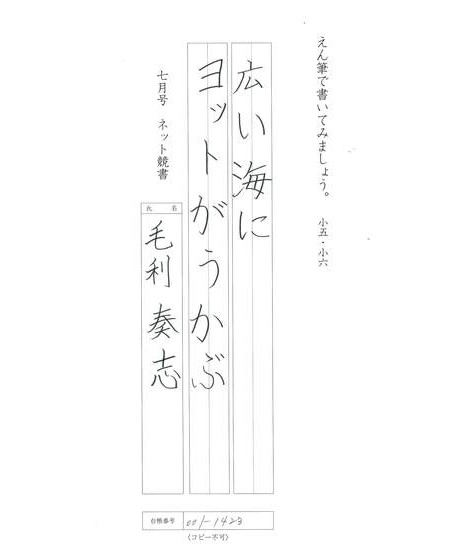 えん筆で書いてみましょう。 小五・小六
広い海に
ヨットがうかぶ
七月号 ネット競書
氏名
毛利 奏志
台帳番号 001-1423
〈コピー不可〉